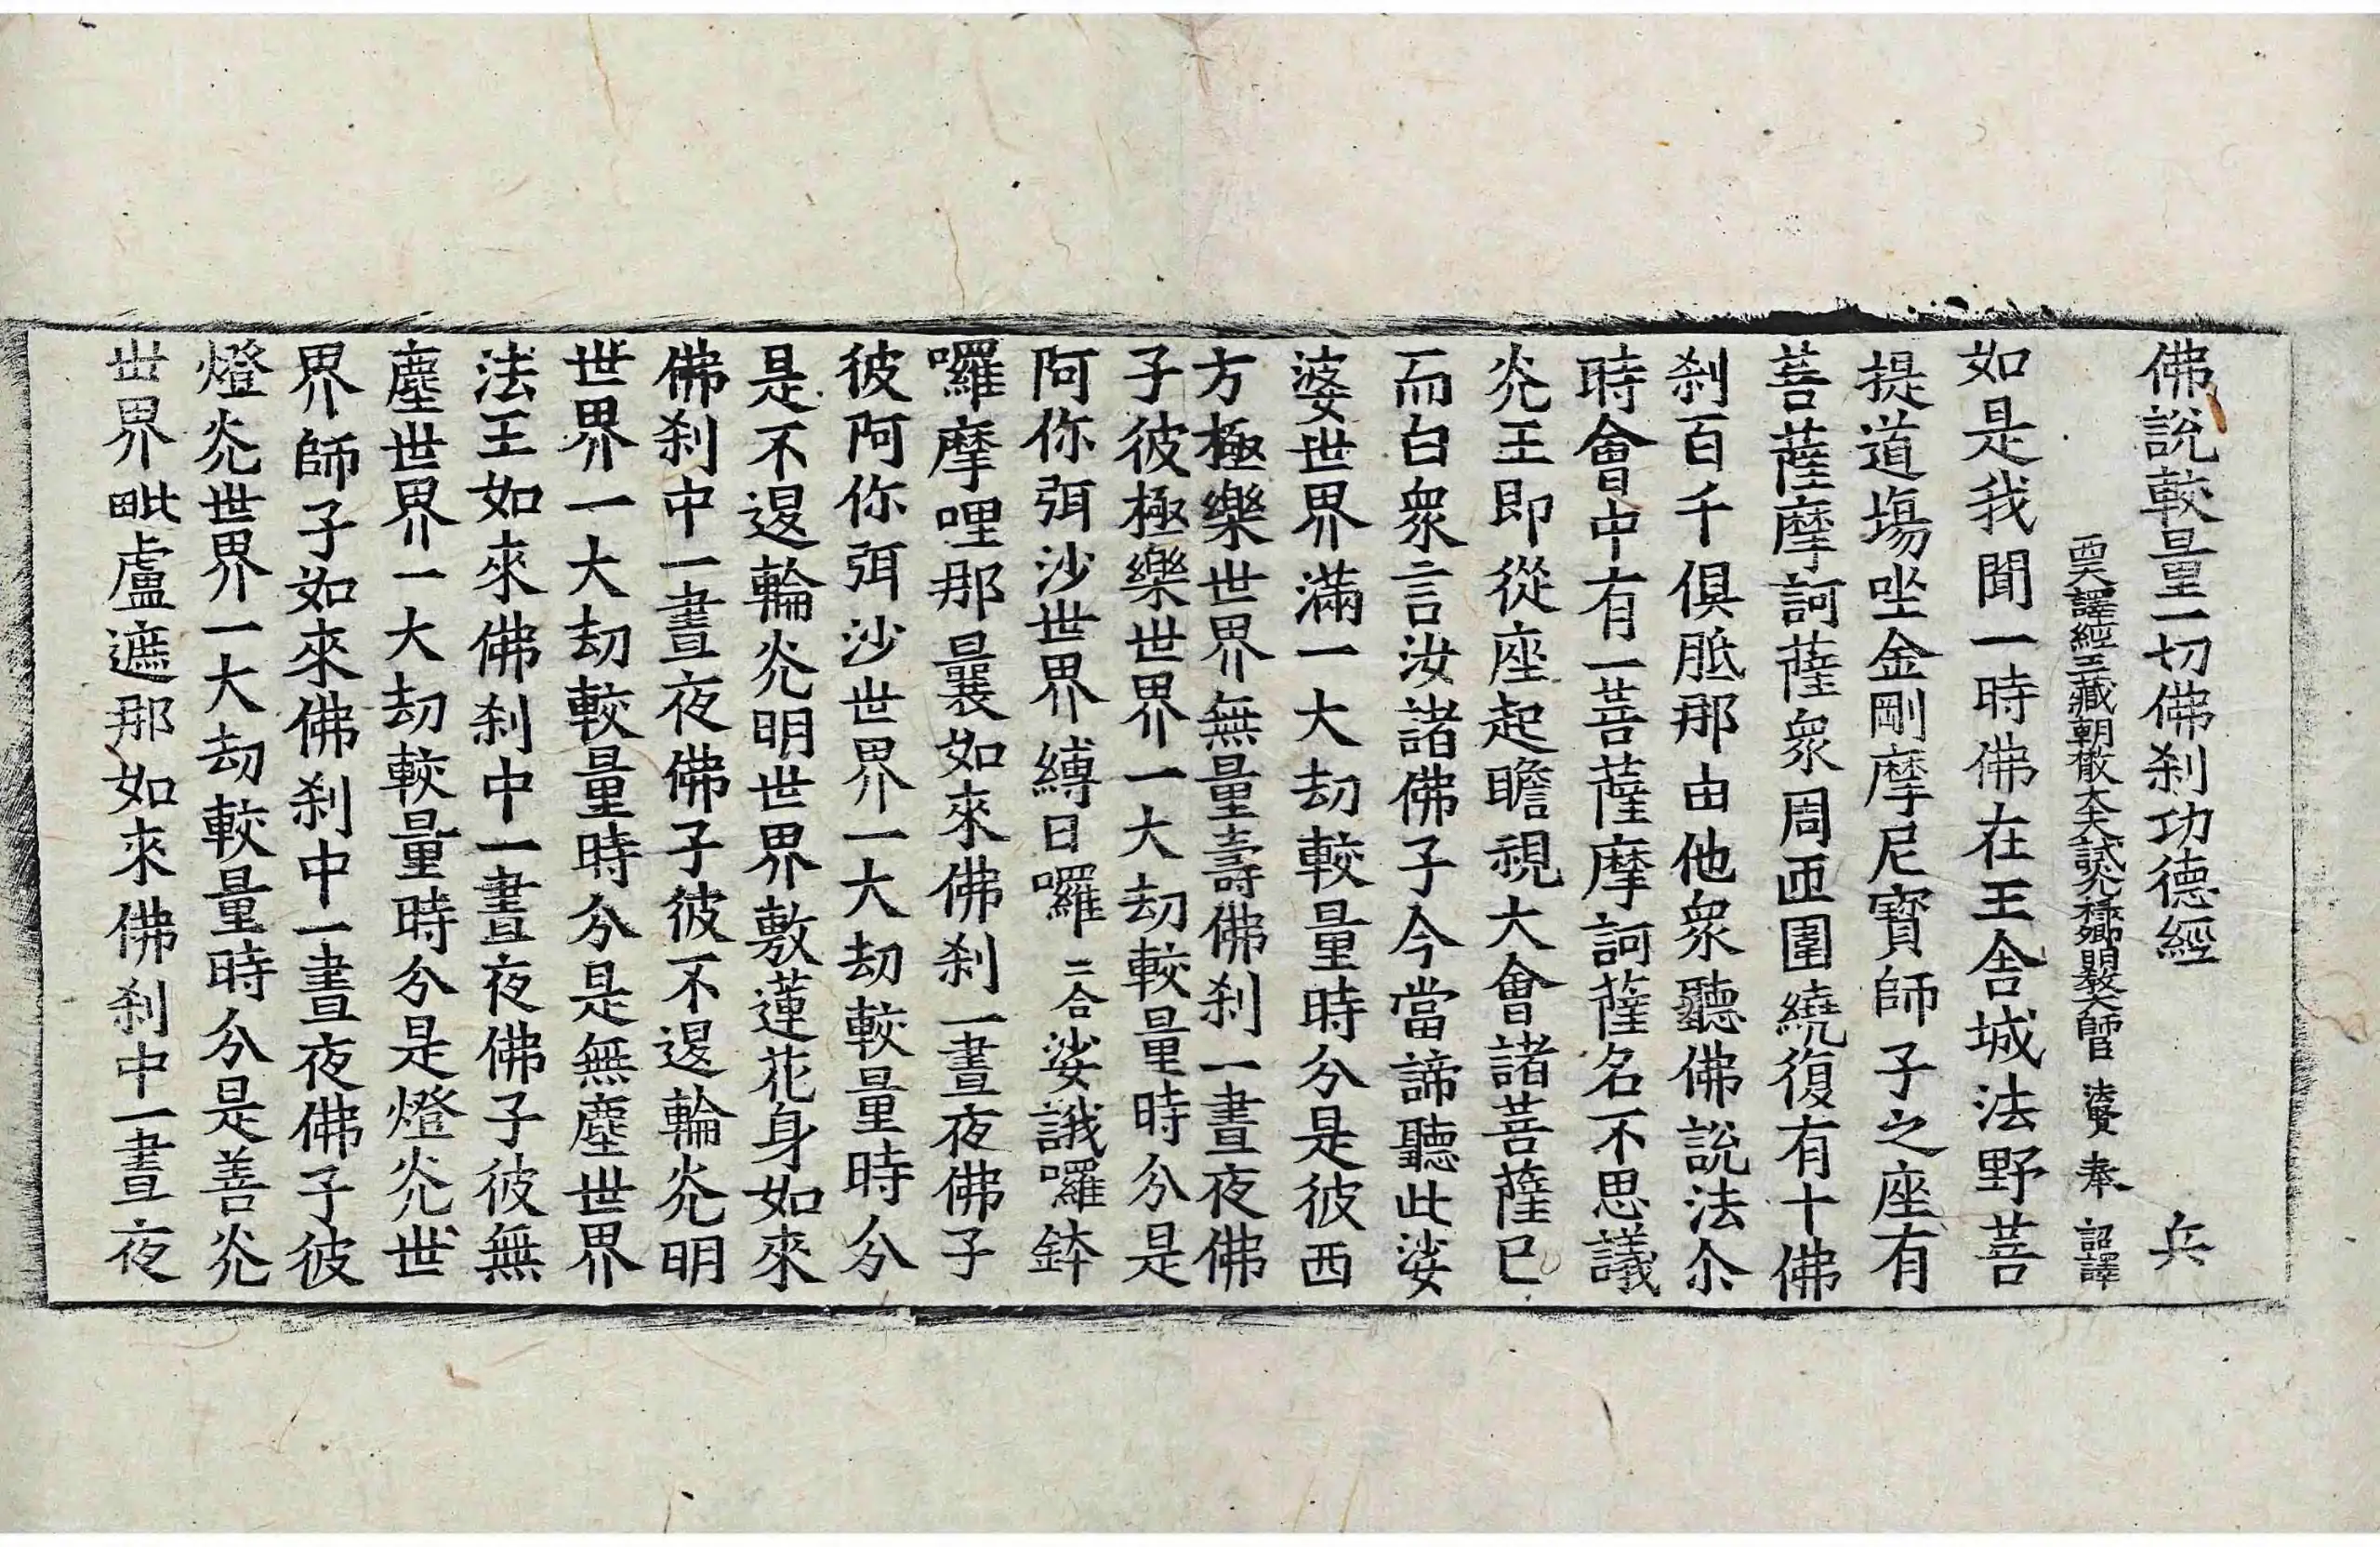 佛說較量一切佛剎功德經 兵
西天譯經三藏朝散大夫試光祿卿明教大師臣 法賢 奉 詔譯
如是我聞一時佛在王舍城法野菩
提道場坐金剛摩尼寶師子之座有
菩薩摩訶薩眾周匝圍繞復有十佛
剎百千俱胝那由他眾聽佛說法尒
時會中有一菩薩摩訶薩名不思議
灮王即從座起瞻視大會諸菩薩已
而白眾言汝諸佛子今當諦聽此娑
婆世界滿一大劫較量時分是彼西
方極樂世界無量壽佛剎一晝夜佛
子彼極樂世界一大劫較量時分是
阿你弭沙世界縛日囉二合娑誐囉鉢
囉摩哩那曩如來佛剎一晝夜佛子
彼阿你弭沙世界一大劫較量時分
是不退輪灮明世界敷蓮花身如來
佛剎中一晝夜佛子彼不退輪灮明
世界一大劫較量時分是無塵世界
法王如來佛剎中一晝夜佛子彼無
塵世界一大劫較量時分是燈灮世
界師子如來佛剎中一晝夜佛子彼
燈灮世界一大劫較量時分是善灮
世界毗盧遮那如來佛剎中一晝夜